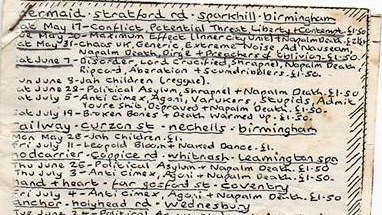 mermaid - stratford rd - sparkhill - birmingham
May 17 - Conflict, Potential Threat, Liberty + Contempt. £1.50
May 20 - Maximum Effect (Inner City Unit) + Napalm Death
Sat May 31 - Chaos UK, Generic, Extreme Noise, Ad Nauseam,
Napalm Death, Dirge + Preachers of Oblivion. £1.50
Sat June 7 - Disorder, Lord Crucifier, Shrapnel, Napalm Death
Ripcord, Aberation + Scumdribblers. £1.50
Sun June 8 - Jah Children (reggae).
Sat June 28 - Political Asylum, Shrapnel + Napalm Death. £1.50
Sat July 5 - Anti Cimex, Agoni, Varukers, Stupids, Admit
Youre Shit, Depraved + Napalm Death. £1.50
Sat July 19 - Broken Bones + Death Warmed Up. £1.50
railway - curzon st - nechells - birmingham
May 28 - Jah Children. £1.
Fri July 11 - Leopold Bloom + Naked Dance. £1.
hodcarrier - coppice rd - whitnash - leamington spa
Thu June 26 - Political Asylum + Napalm Death. £1.50
Thu July 3 - Anti Cimex, Agoni + Napalm Death. £1.50
hand + heart - far gosford st - coventry
Fri July 4 - Anti Cimex, Agoni + Napalm Death. £1.50
anchor - holyhead rd - wednesbury
Tue June 24 - Political